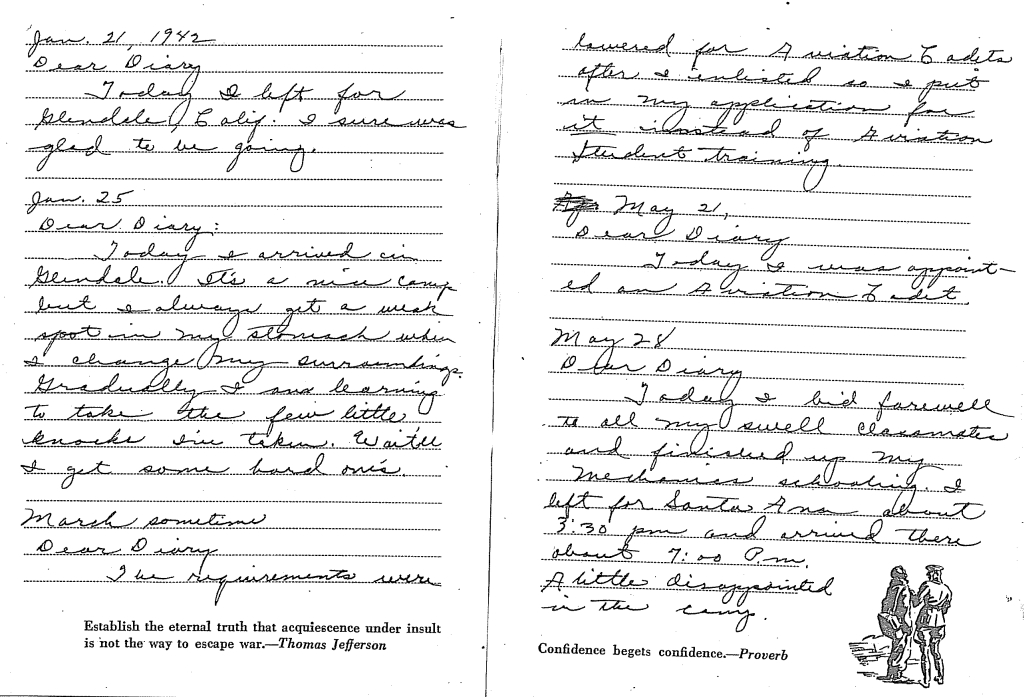 Jan. 21, 1942
Dear Diary
Today I left for
Glendale, Calif. I sure was
glad to be going.
Jan. 25
Dear Diary:
Today I arrived in
Glendale. It's a nice camp
but I always get a weak
spot in my stomach when
I change my surroundings.
Gradually I am learning
to take the few little
knocks I've taken. Wait'll
I get some hard ones.
March sometime
Dear Diary
The requirements were
Establish the eternal truth that acquiescence under insult
is not the way to escape war.—Thomas Jefferson
lowered for Aviation Cadets
after I enlisted so I put
in my application for
it instead of Aviation
Student training.
May 21,
Dear Diary
Today I was appoint-
ed an Aviation Cadet.
May 28
Dear Diary
Today I bid farewell
to all my swell classmates
and finished up my
mechanics schooling. I
left for Santa Ana about
3:30 pm and arrived there
about 7:00 P.m.
A little disappointed
in the camp.
Confidence begets confidence.—Proverb